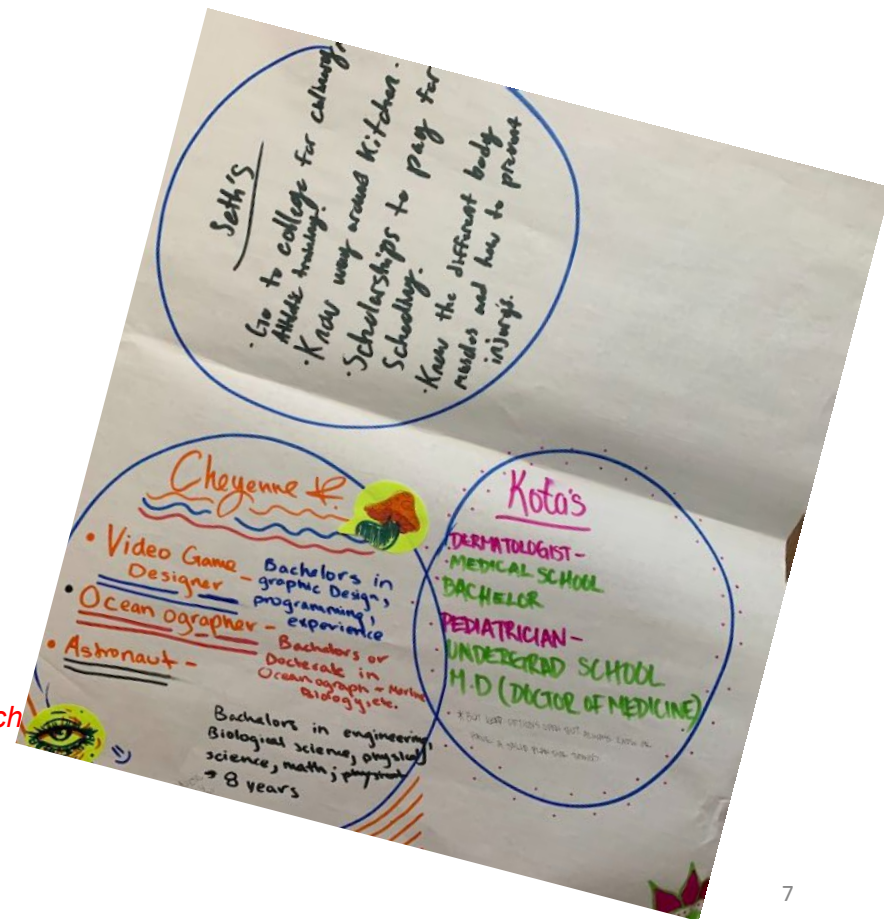 Seth's
· Go to college for culinary,
Athletic training.
· Know way around Kitchen.
· Scholarships to pay for
Schooling.
· Know the different body
muscles and how to prevent
injurys.
Cheyenne
• Video Game
Designer - Bachelors in
graphic Design,
programming,
experience
• Ocean ographer - Bachelors or
Docterate in
Oceanograph - Marine
Biology, etc.
• Astronaut -
Bachelors in engineering,
Biological science, physical
science, math;
→ 8 years
Kota's
DERMATOLOGIST-
·MEDICAL SCHOOL
BACHELOR
PEDIATRICIAN-
UNDERGRAD SCHOOL
M.D (DOCTOR OF MEDICINE)
ch
7